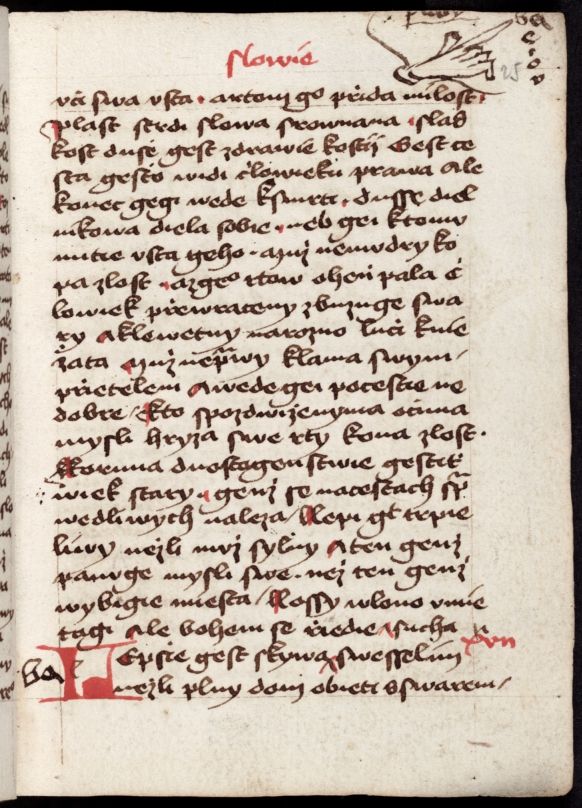 slowie
25
vči swa vsta · artom go přida milost ·
Plast strdi slowa srownana · slad
kost duse gest zdrawie kostij Gest ce
sta gesto widi člowieku prawa Ale
konec gegi wede k smrti · dusse diel
nikowa diela sobie · neb gei k tomu
nutie vsta geho · muž nemudry ko
pa zlost · a w geo rtow oheň pala č
lowiek přewraceny zbuzuge swa
ry A klewetny narozno luči knie
žata muž nepwy klama swym
přietelem A wede gei po cestie ne
dobre / kto s pozdwiženyma očima
mysli hryza swe rty kona zlost ·
Koruna duostogenstwie gest
wiek stary · genž se na cestach sp
wedliwych naleza / Lepi gt trpie
liwy nežli muž sylny A ten genž
panuge mysli swe · než ten genž
wybigie miesta / Lossy w lono vmie
tagi Ale bohem se riedie / sucha
xvii
LEpsie gest skywa s wesselim
nežli plny dom obieti s swarem